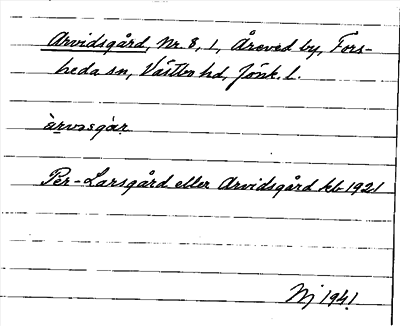 Arvidsgård, Nr. 8, 1, Åreved by, Fors-
heda sn, Västbo hd, Jönk. l.
àrvasgàr
Per-Larsgård eller Arvidsgård kb 1921
Nj 1941